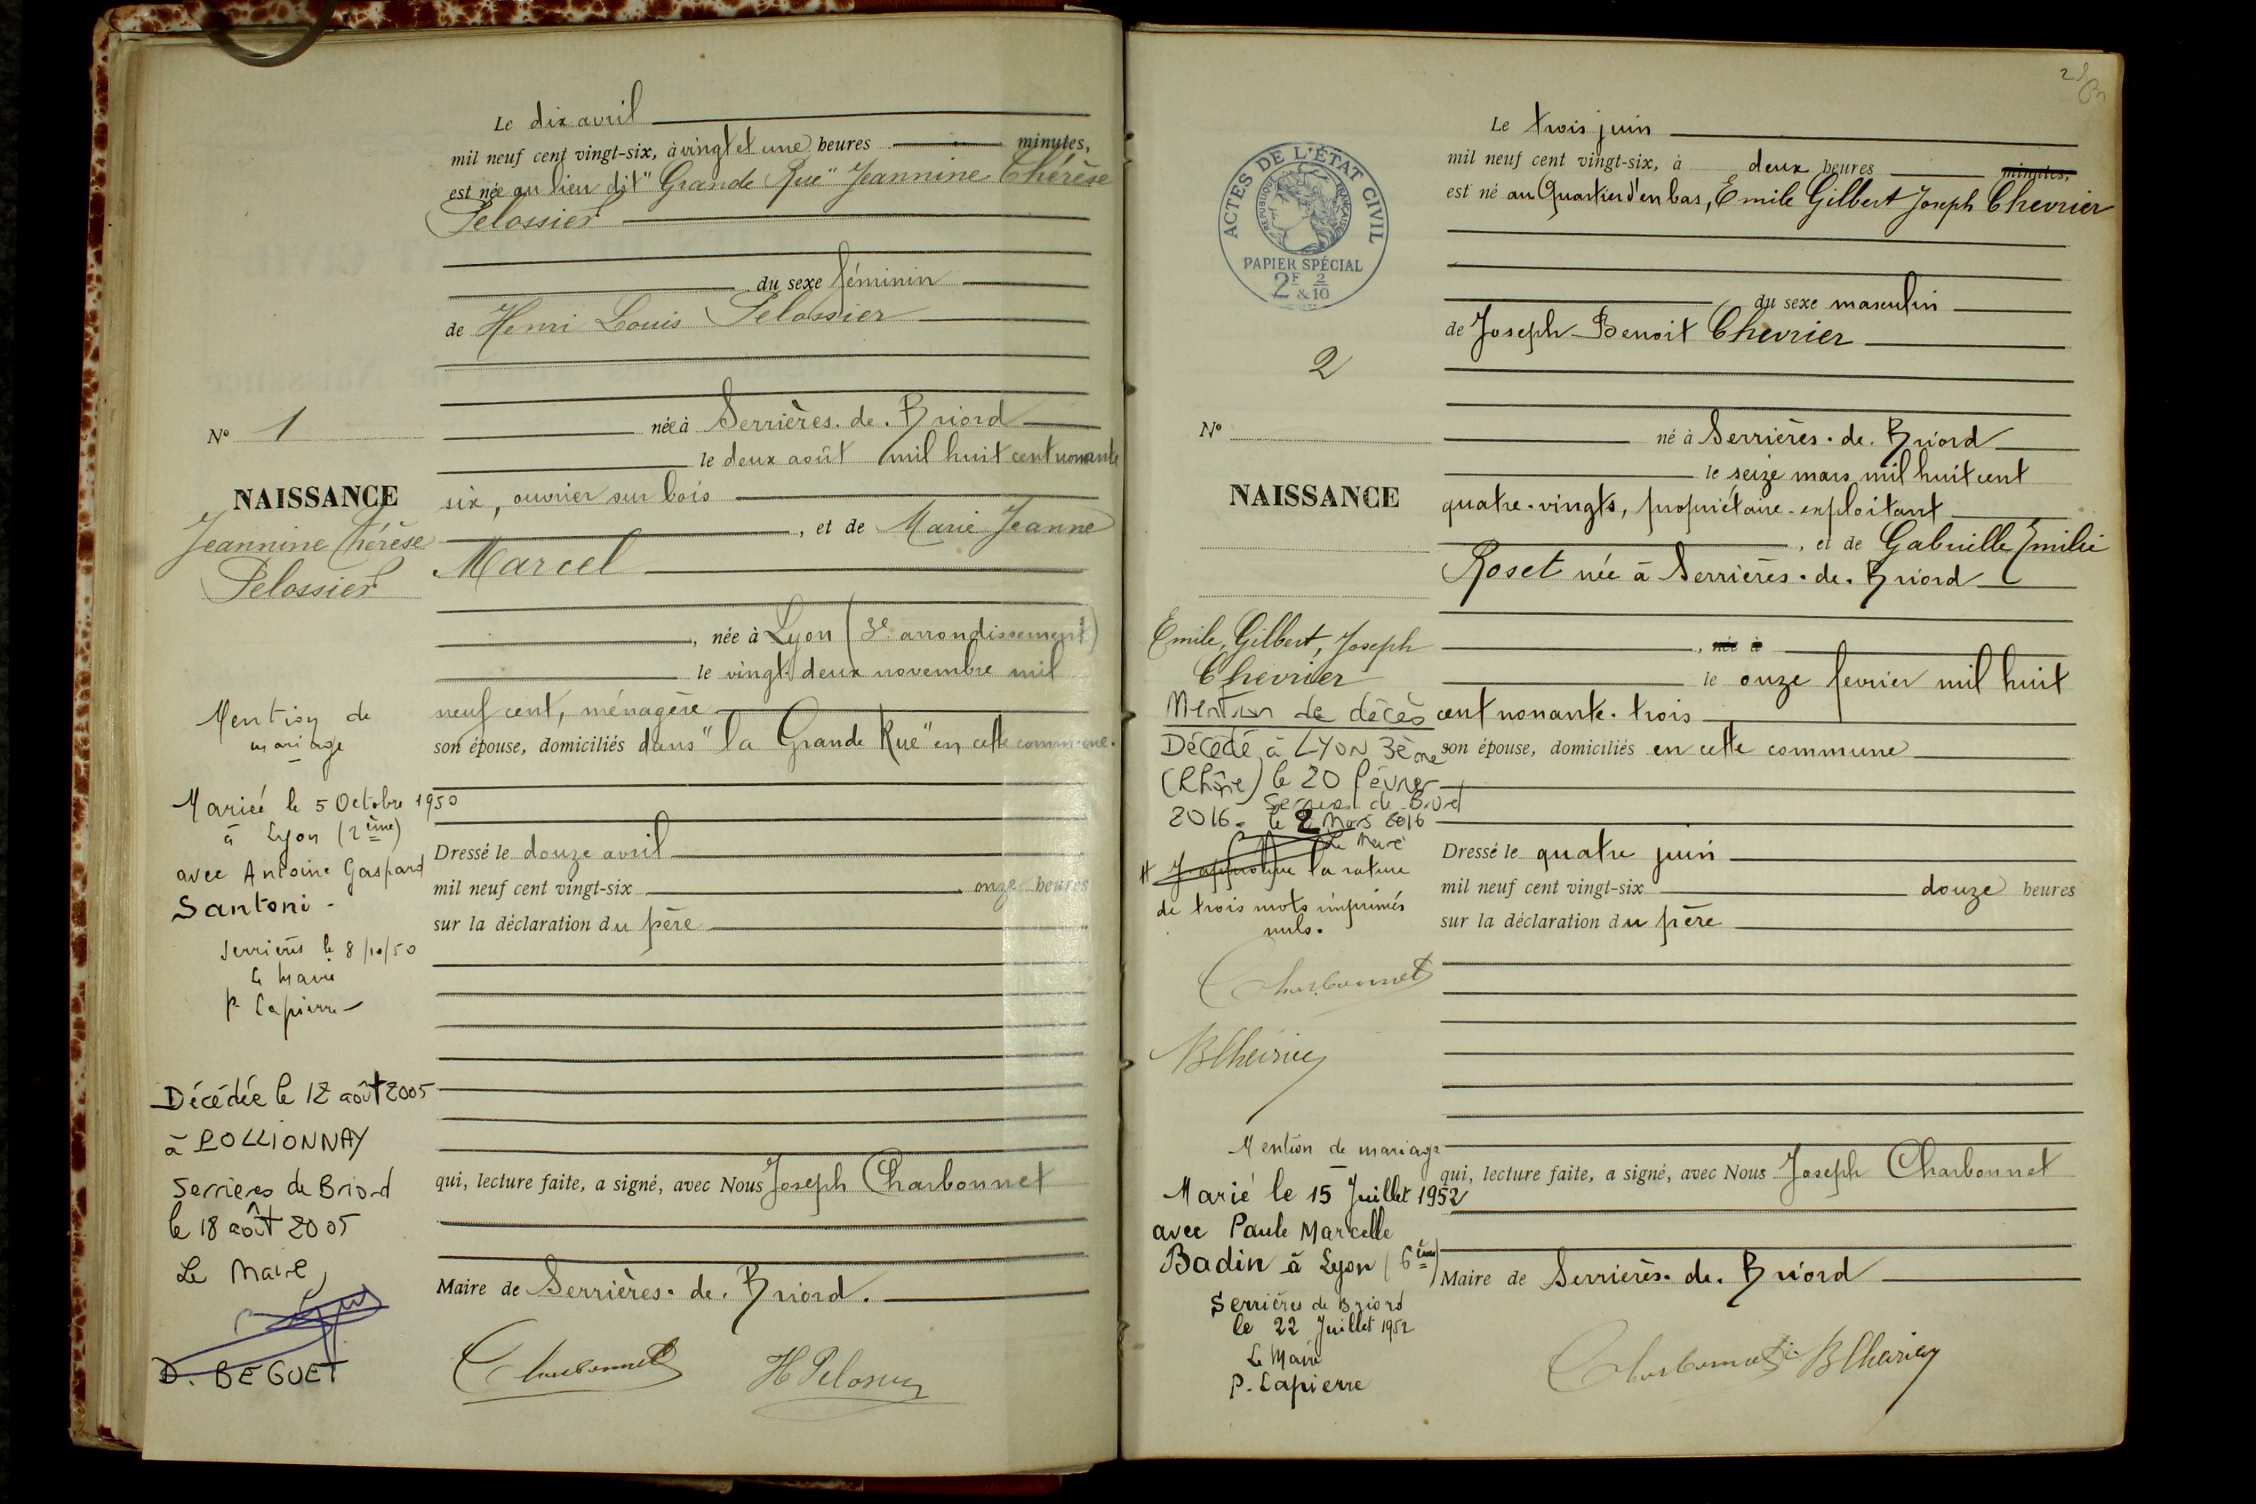 Le dix avril
mil neuf cent vingt-six, à vingt et une heures minutes,
est née au lieu dit "Grande Rue" Jeannine Thérèse
Pelossier
du sexe féminin
de Henri Louis Pelossier
née à Serrières-de-Briord
le deux août mil huit cent nonante
six, ouvrier sur bois
, et de Marie Jeanne
Marcel
, née à Lyon (3e arrondissement)
le vingt-deux novembre mil
neuf cent, ménagère
son épouse, domiciliés dans "la Grande Rue" en cette commune.
Dressé le douze avril
mil neuf cent vingt-six onze heures
sur la déclaration du père
qui, lecture faite, a signé, avec Nous Joseph Charbonnet
Maire de Serrières-de-Briord.
Charbonnet H Pelossier
No 1
NAISSANCE
Jeannine Thérèse
Pelossier
Mention de
mariage
Mariée le 5 Octobre 1950
à Lyon (2ème)
avec Antoine Gaspard
Santoni -
Serrières le 8/10/50
Le Maire
P. Lapierre
Décédée le 12 août 2005
à POLLIONNAY
Serrieres de Briord
le 18 août 2005
Le Maire,
D. BEGUET
2
Le trois juin
mil neuf cent vingt-six, à deux heures minutes,
est né au Quartier d'en bas, Emile Gilbert Joseph Chevrier
du sexe masculin
de Joseph-Benoit Chevrier
né à Serrières-de-Briord
le seize mars mil huit cent
quatre-vingts, propriétaire-exploitant
, et de Gabrielle Emilie
Roset née à Serrières-de-Briord
, née à
le onze fevrier mil huit
cent nonante-trois
son épouse, domiciliés en cette commune
Dressé le quatre juin
mil neuf cent vingt-six douze heures
sur la déclaration du père
qui, lecture faite, a signé, avec Nous Joseph Charbonnet
Maire de Serrières-de-Briord
Charbonnet B Chevrier
ACTES DE L'ÉTAT CIVIL
RÉPUBLIQUE FRANÇAISE
PAPIER SPÉCIAL
2F & 2/10
2
No
NAISSANCE
Emile, Gilbert, Joseph
Chevrier
Mention de décès
Décédé à LYON 3ème
(Rhône) le 20 février
2016. Serrières de Briord
le 2 Mars 2016
Le Maire
J'approuve la rature
de trois mots imprimés
nuls.
Charbonnet
B Chevrier
Mention de mariage
Marié le 15 Juillet 1952
avec Paule Marcelle
Badin à Lyon (6ème)
Serrières de Briord
le 22 Juillet 1952
Le Maire
P. Lapierre